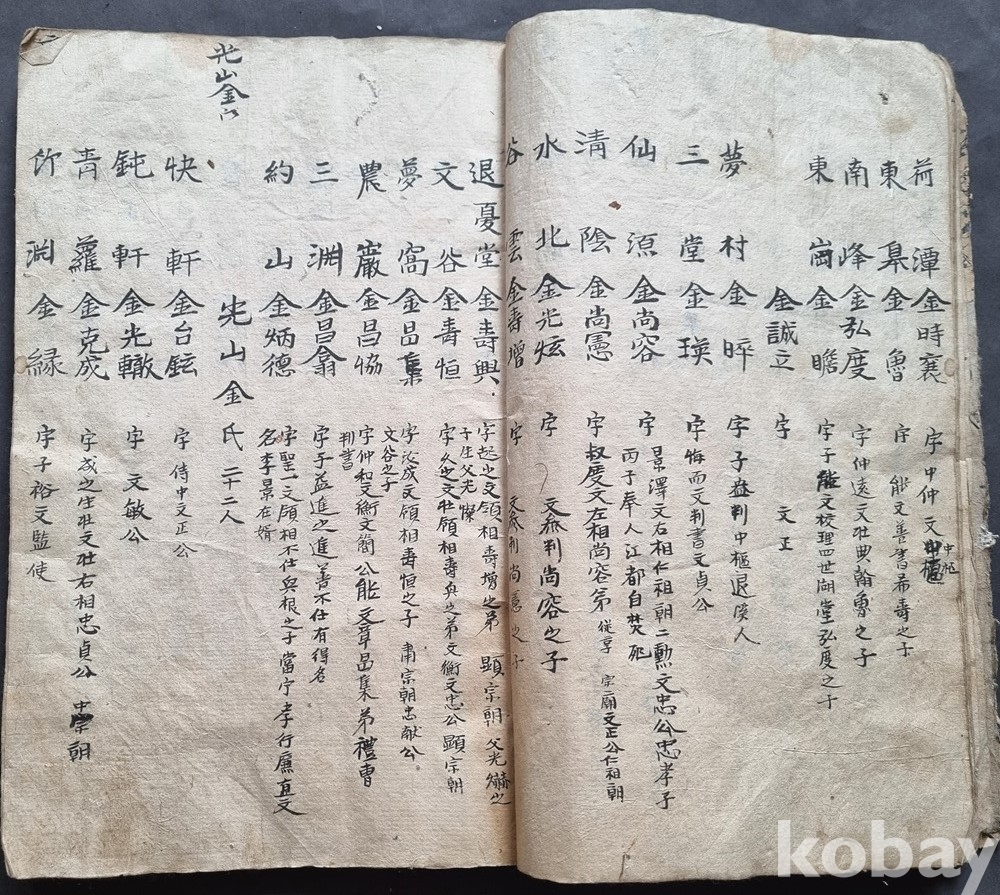 荷潭 金時襄 字中仲文中樞
東皐 金魯 字 能文善書希壽之子
南峰 金弘度 字仲遠文壯典翰魯之子
東崗 金瞻 字子能文校理四世湖堂弘度之子
金誠立 字 文正
夢村 金晬 字子益判中樞退溪人
三堂 金瑛 字悔而文判書文貞公
仙源 金尚容 字景澤文右相仁祖朝二勳文忠公忠孝子
丙子奉人江都自焚死
清陰 金尚憲 字叔度文左相尚容弟 從享 宗廟文正公仁祖朝
水北 金光炫 字 文參判尚容之子
谷雲 金壽增 字 文參判尚憲之子
退憂堂 金壽興 字起之文領相壽增之弟 顯宗朝 父光
子生父光燦
文谷 金壽恒 字久之文壯領相壽興之弟文衡文忠公顯宗朝
夢窩 金昌集 字汝成文領相壽恒之子 肅宗朝忠献公
文谷之子
農巖 金昌協 字仲和文衡文簡公能文章昌集弟禮曹
判書
三渊 金昌翕 字子益進之進善不仕有得名
約山 金炳德 字聖一文領相不仕與根之子當宁孝行廉直文
名李景在婿
光山金氏
光山金氏二十二人
快軒 金台鉉 字侍中文正公
鈍軒 金光轍 字 文敏公
青蘿 金克成 字成之生壯文壯右相忠貞公 中宗朝
竹渊 金緣 字子裕文監使
kobay